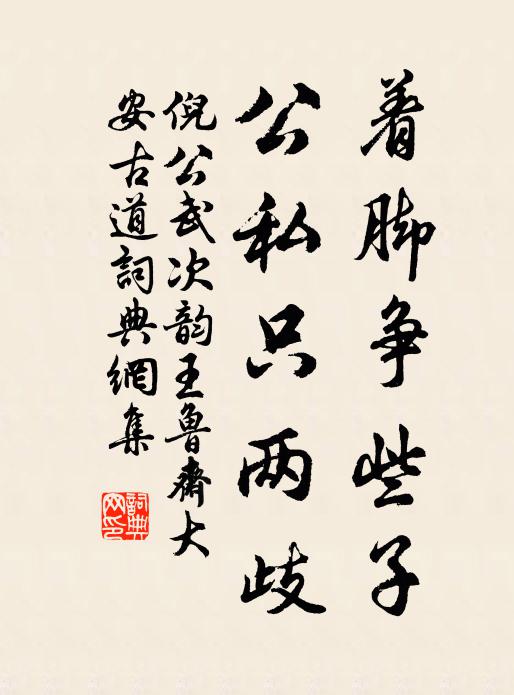 着脚争些子
公私只两歧
倪公武次韵王鲁斋大
安古道詞典網集
詞典网印